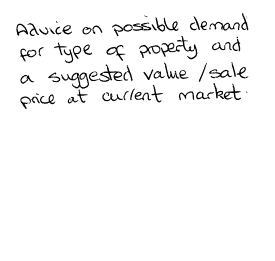 Advice on possible demand
for type of property and
a suggested value / sale
price at current market.